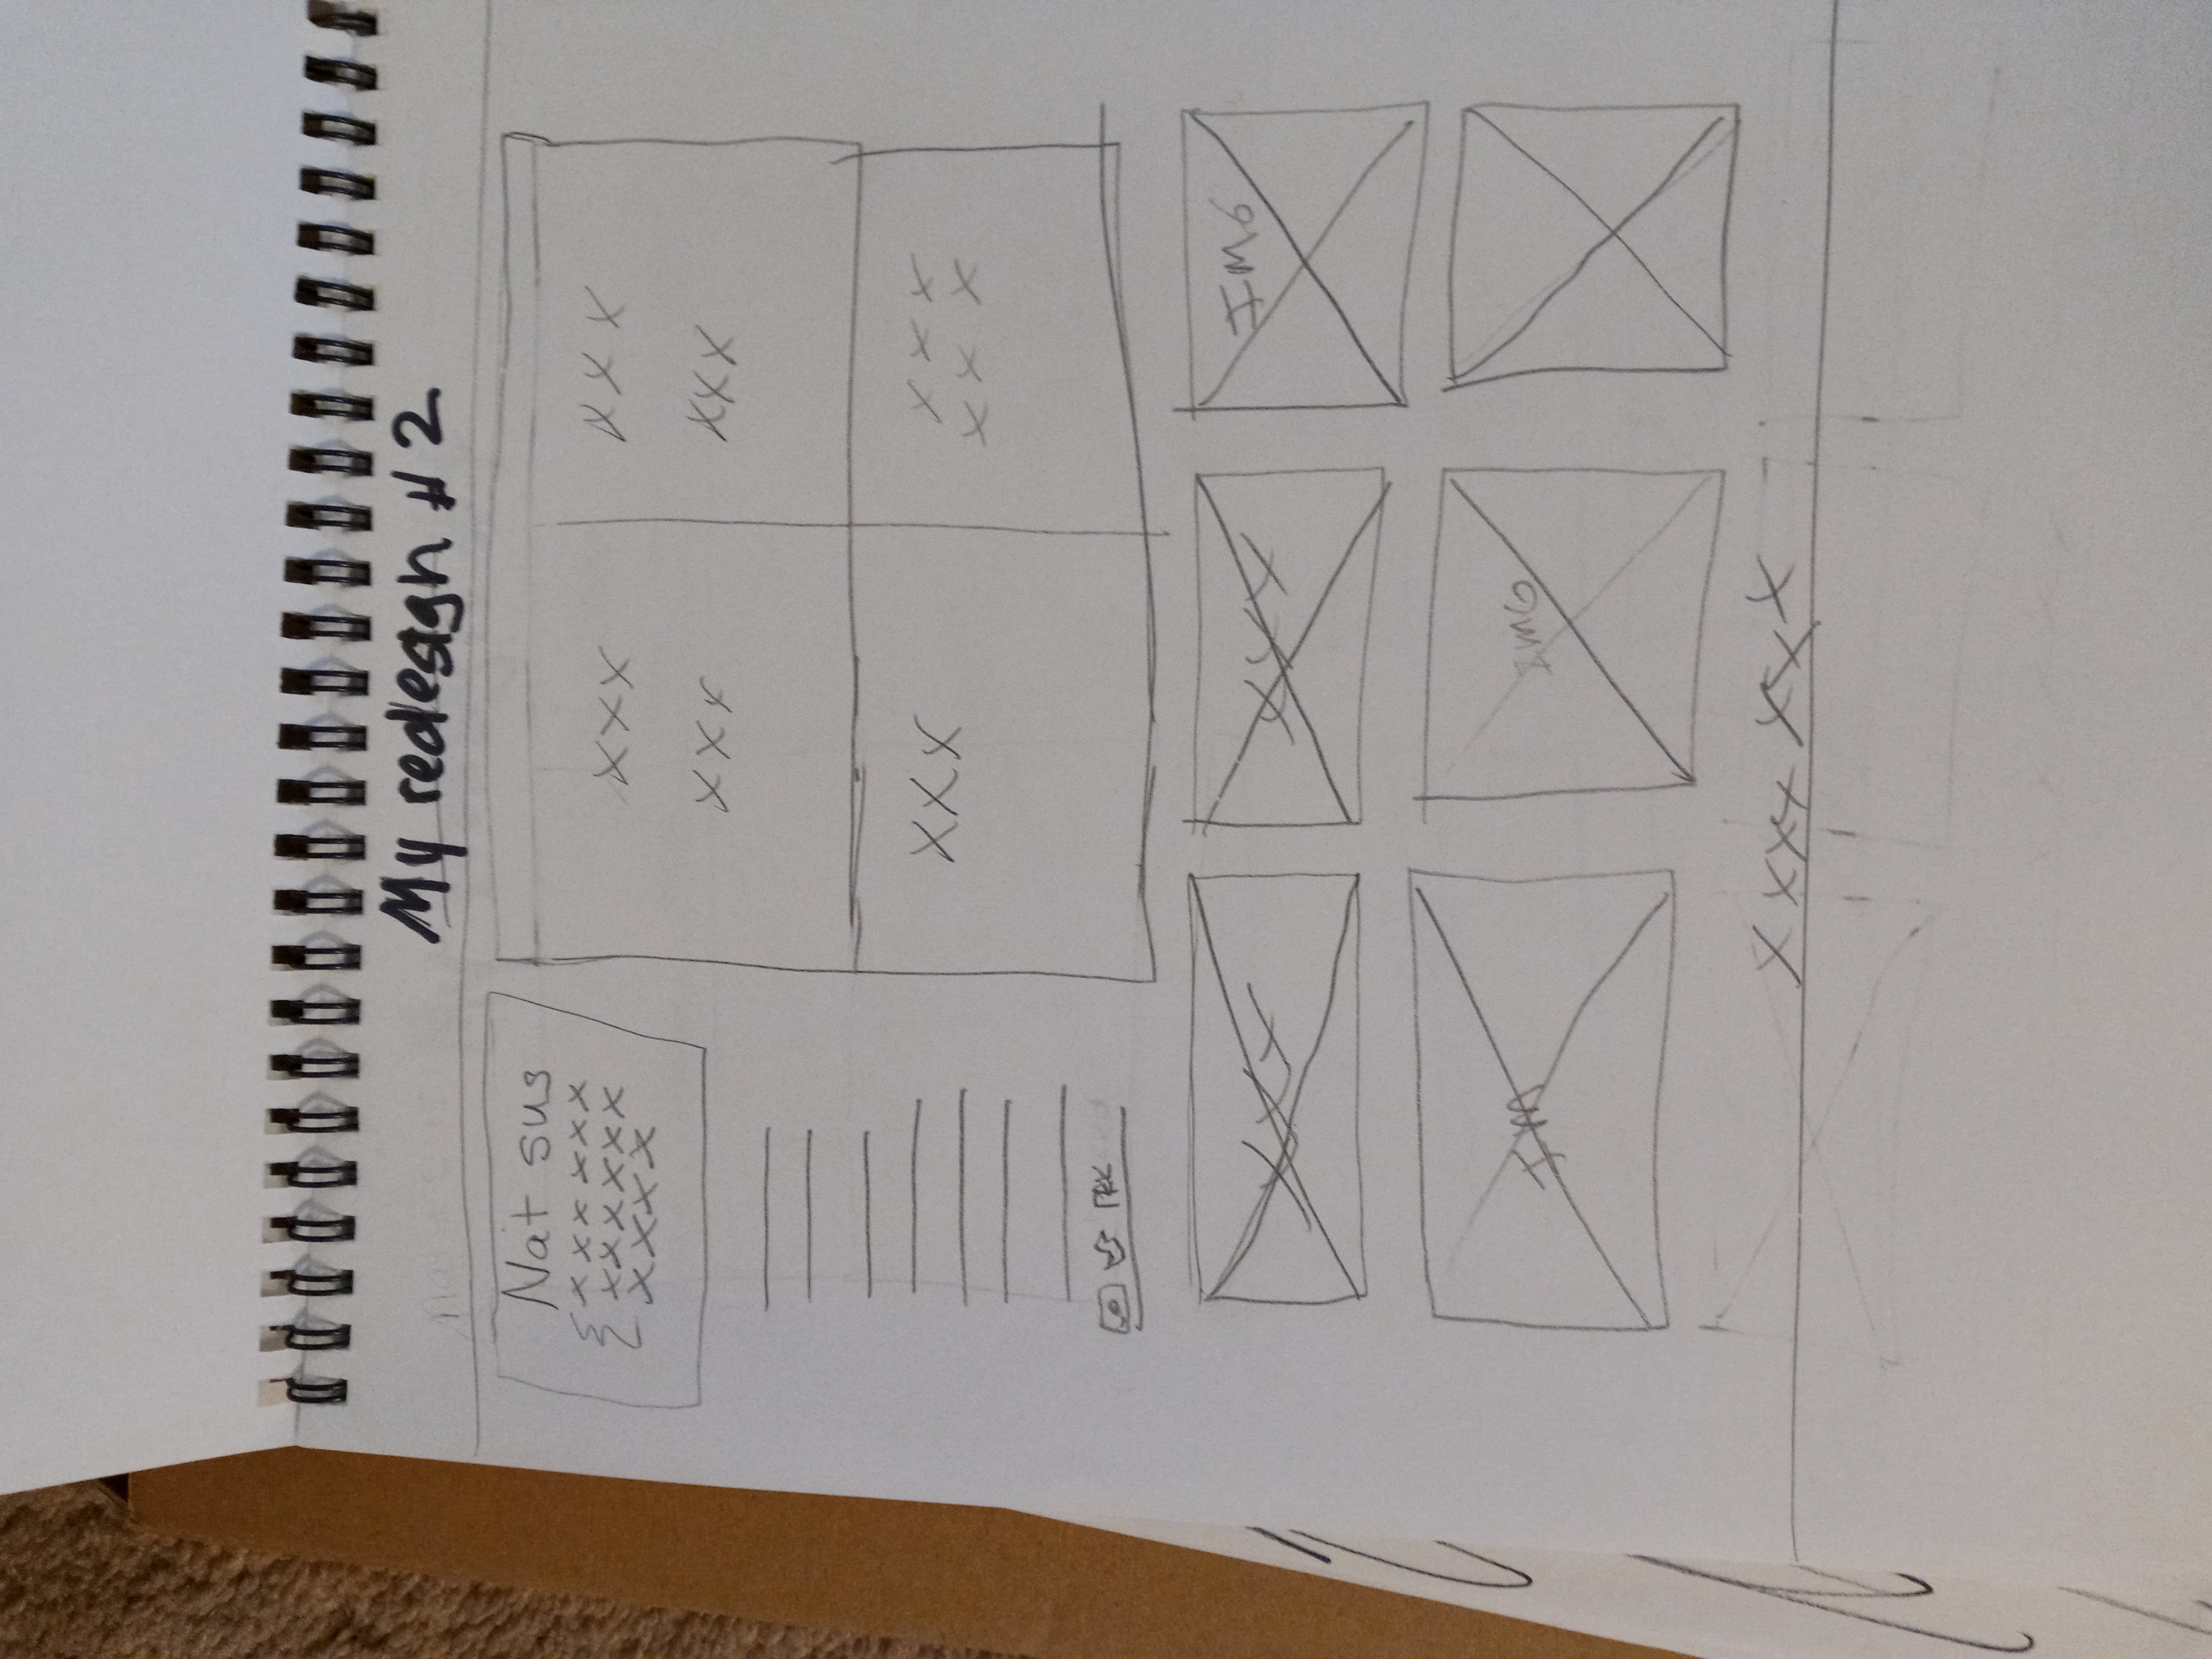 My redesign # 2
Nat sus
x x x x x x
x x x x x x
x x x x x
x x x
x x x
x x x
x x x
x x x
x x x
x x x
x x x
x x x
IMG
IM
IMG
x x x x x x x